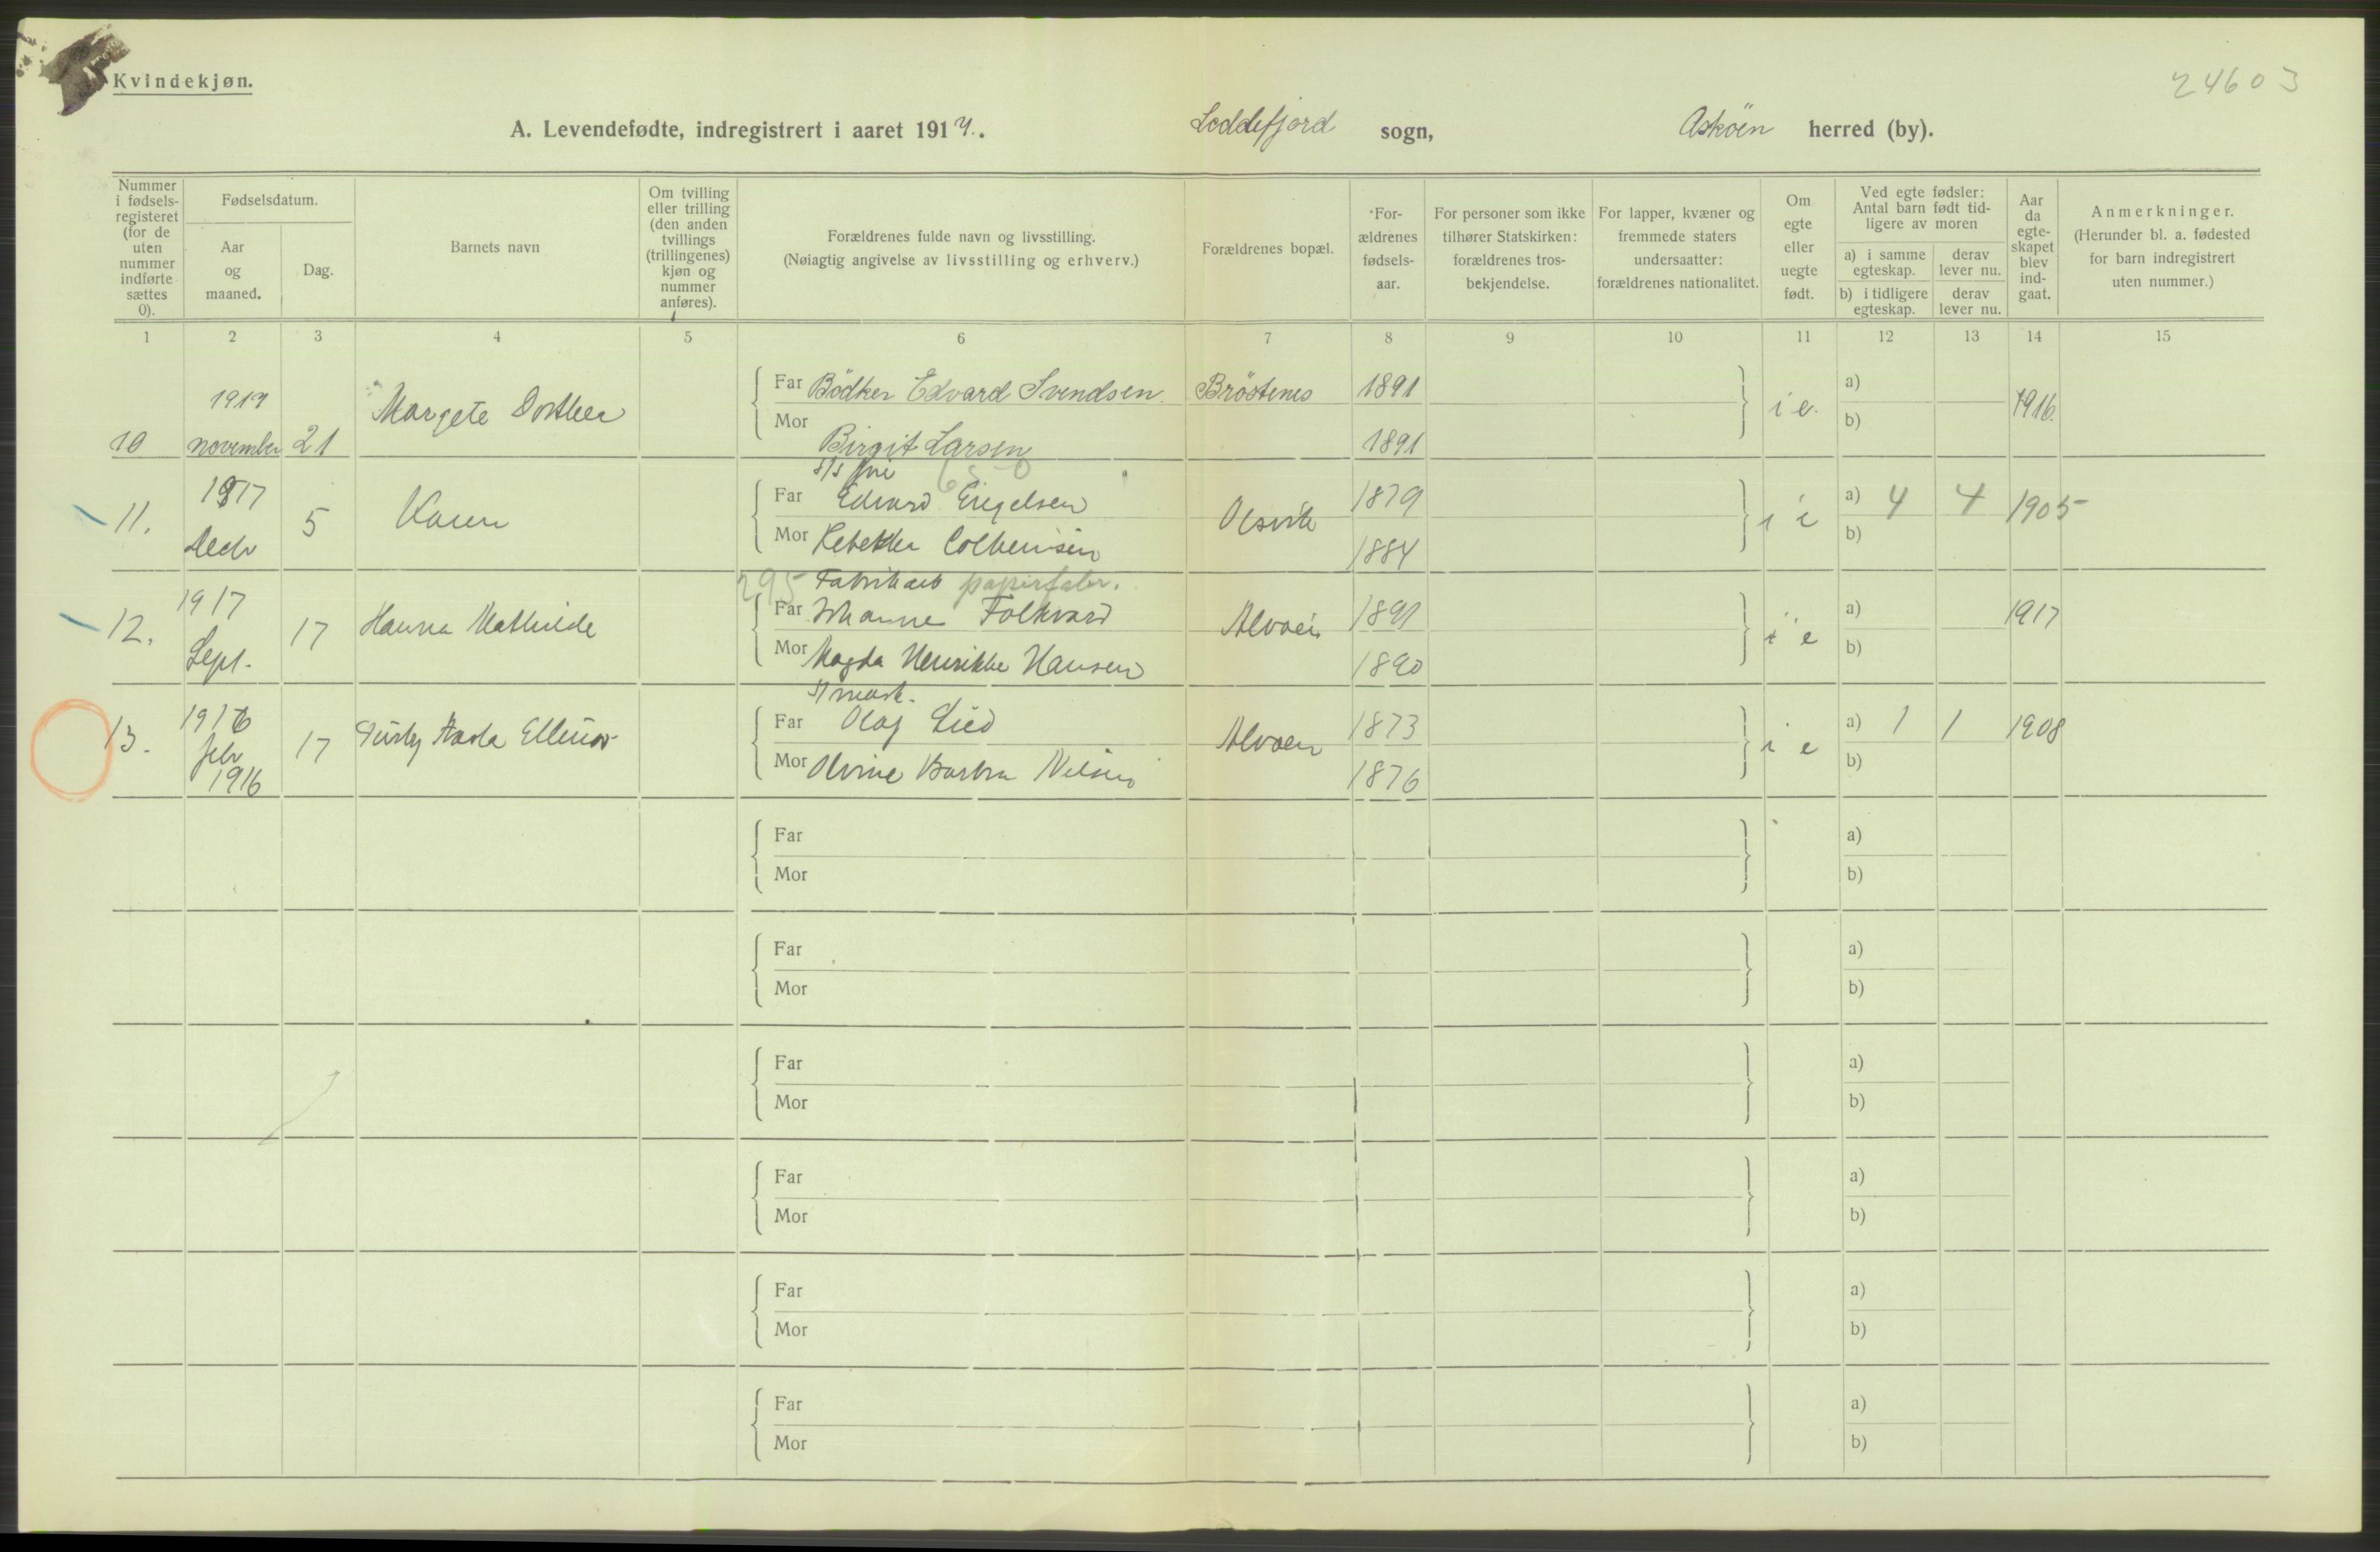 Kvindekjøn.
24603
A. Levendefødte, indregistrert i aaret 1917. Loddefjord sogn, Askøen herred (by).
Nummer i fødsels-registeret (for de uten nummer indførte sættes 0).
Fødselsdatum.
Aar og maaned.
Dag.
Barnets navn
Om tvilling eller trilling (den anden tvillings (trillingenes) kjøn og nummer anføres).
Forældrenes fulde navn og livsstilling.
(Nøiagtig angivelse av livsstilling og erhverv.)
Forældrenes bopæl.
For-ældrenes fødsels-aar.
For personer som ikke tilhører Statskirken: forældrenes tros-bekjendelse.
For lapper, kvæner og fremmede staters undersaatter: forældrenes nationalitet.
Om egte eller uegte født.
Ved egte fødsler: Antal barn født tid-ligere av moren
a) i samme egteskap.
derav lever nu.
b) i tidligere egteskap.
derav lever nu.
Aar da egte-skapet blev ind-gaat.
Anmerkninger.
(Herunder bl. a. fødested for barn indregistrert uten nummer.)
1 2 3 4 5 6 7 8 9 10 11 12 13 14 15
10 1917 november 21 Margete Dorthea
Far Bödker Edvard Svendsen Bröstenes 1891 i e. a) 1916.
Mor Birgit Larsen 1891 b)
11. 1917 Decbr 5 Karen
Far Edvard Engelsen Olsvik 1879 i e a) 4 4 1905
Mor Rebekka 1884 b)
295 Fabrikarb papirfabr.
12. 1917 Sept. 17 Hanna Mathilde
Far Johannes Folkvard Alvøen 1891 i e a) 1917
Mor Magda Henrikke Hansen 1890 b)
13. 1916 febr 1916 17 Aasta Ellinor
Far Olaf Lied Alvøen 1873 i e a) 1 1 1908
Mor Olvine Barbra Nilsen 1876 b)
Far a)
Mor b)
Far a)
Mor b)
Far a)
Mor b)
Far a)
Mor b)
Far a)
Mor b)
Far a)
Mor b)